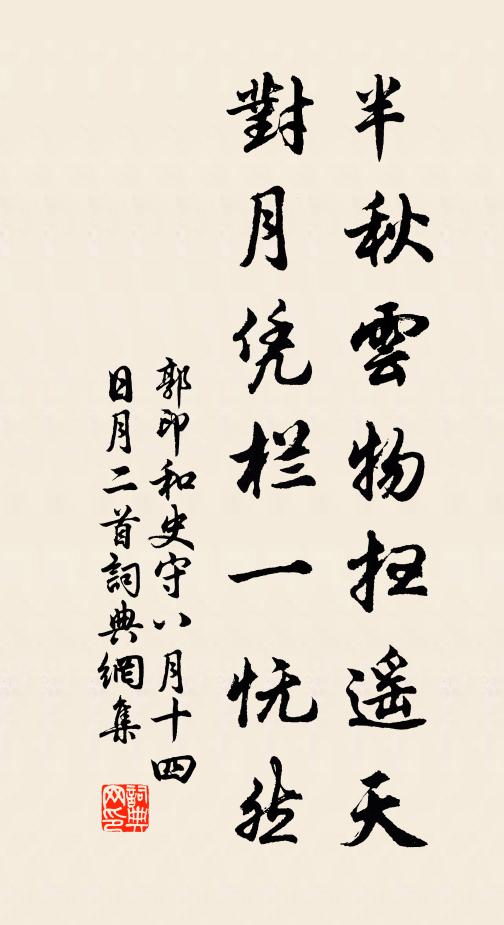 半秋雲物扫遥天
對月凭栏一怃然
郭印和史守八月十四
日月二首詞典網集
詞典网印